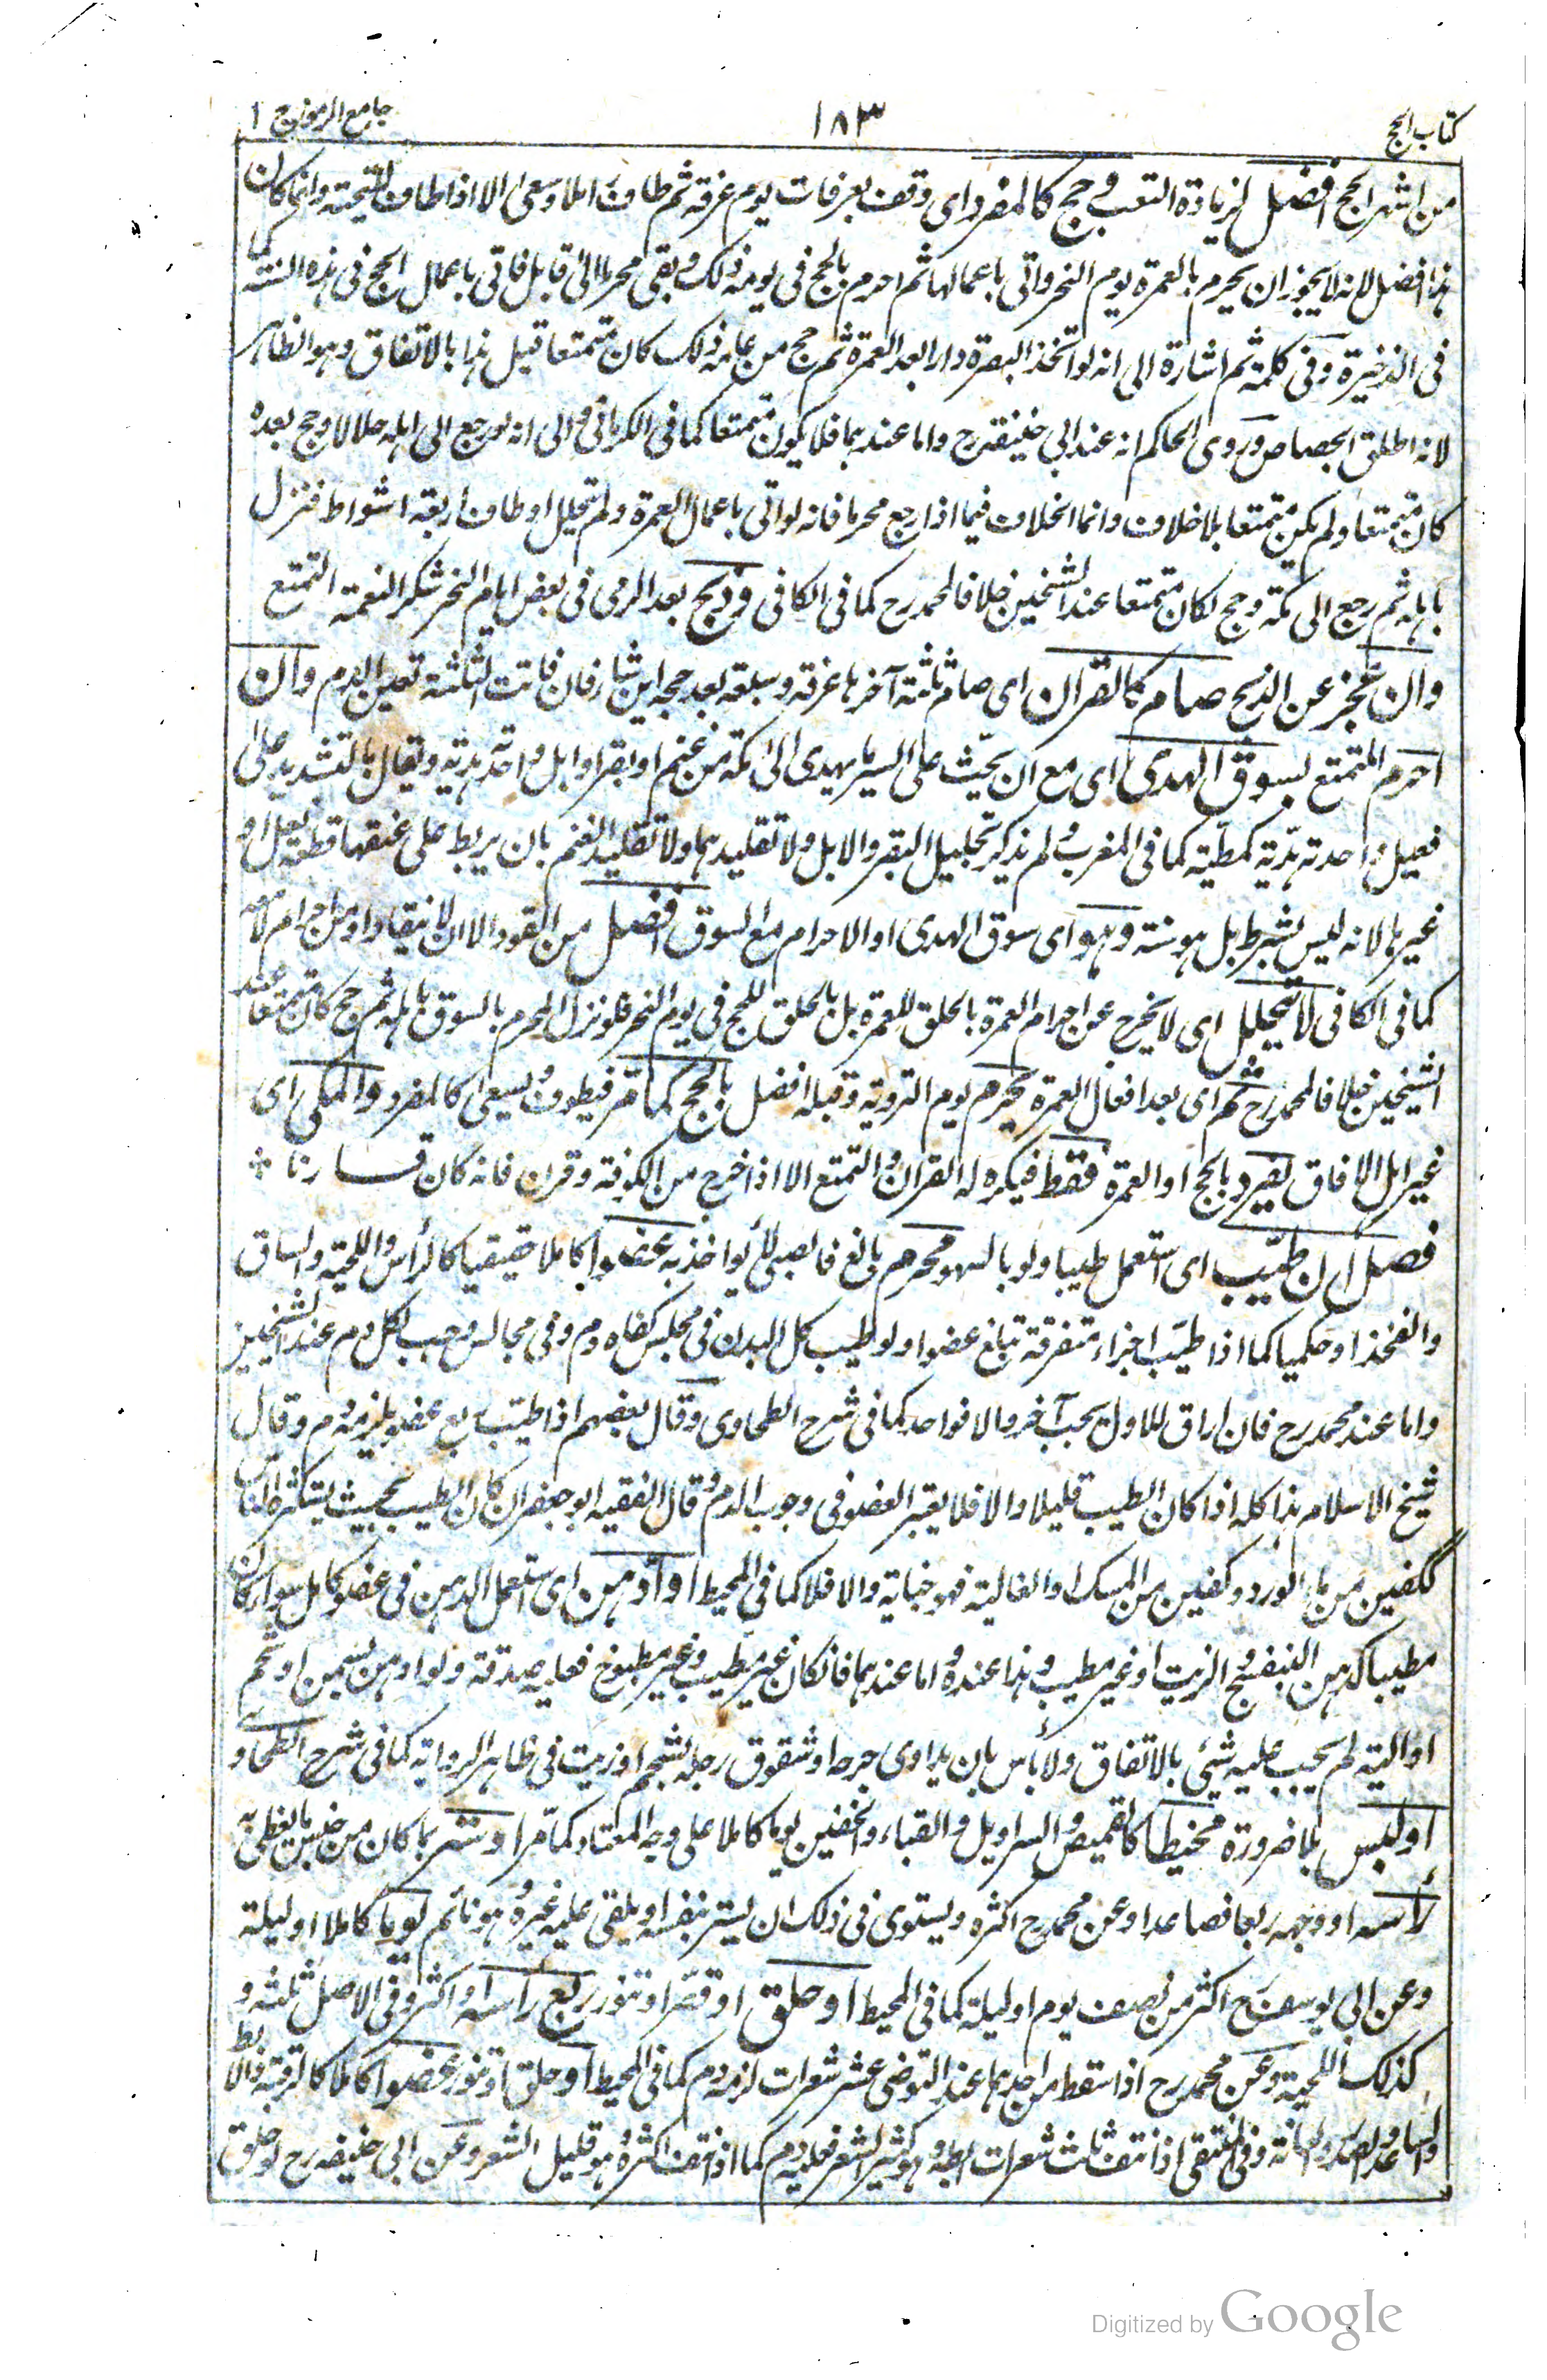 كتاب الحج
١٨٣
جامع الرموز ج ١
من اشهر الحج افضل لزيادة التعب و حج كالمفرد اى وقف بعرفات يوم عرفة ثم طاف املا وسعى الا اذا طاف للتحية وانما كان
هذا افضل لانه لا يجوز ان يحرم بالعمرة يوم النحر واتى باعمالها ثم احرم بالحج فى يومه ذلك وبقى محرما الى قابل فاتى باعمال الحج فى هذه السنة كما
فى الذخيرة وفى كلمة ثم اشارة الى انه لو اتخذ البصرة دارا بعد العمرة ثم حج من عامه ذلك كان متمتعا قيل هذا بالاتفاق وهو الظاهر
لانه اطلق الجصاص وروى الحاكم انه عند ابى حنيفة رح واما عندهما فلا يكون متمتعا كما فى الكرمانى والى انه لو رجع الى اهله حلالا وحج بعده
كان متمتعا ولم يكن متمتعا بلا خلاف وانما الخلاف فيما اذا رجع محرما فانه لو اتى باعمال العمرة ولم يتحلل او طاف اربعة اشواط فنزل
باهله ثم رجع الى مكة وحج لكان متمتعا عند الشيخين خلافا لمحمد رح كما فى الكافى وذبح بعد الرمى فى بعض ايام النحر شكرا لنعمة التمتع
وان عجز عن الذبح صام كالقران اى صام ثلثة آخرها عرفة وسبعة بعد حجه اين شاء فان فاتت الثلثة تعين الدم وان
احرم المتمتع بسوق الهدى اى مع ان يحث على السير ما يهدى الى مكة من غنم او بقر او ابل واحده هدية ويقال بالتشديد على
فعيل واحدته هدية كمطية كما فى المغرب ولم نذكر تجليل البقر والابل ولا تقليدهما ولا تقليد الغنم بان يربط على عنقها قطعة نعل او
غيرها لانه ليس بشرط بل هو سنة وهو اى سوق الهدى او الاحرام مع السوق افضل من القود الا ان لا ينقاد او من احرام
كما فى الكافى لا يتحلل اى لا يخرج عن احرام العمرة بالحلق للعمرة بل بالحلق للحج فى يوم النحر فلو نزل المحرم بالسوق باهله ثم حج كان متمتعا عند
الشيخين خلافا لمحمد رح ثم اى بعد افعال العمرة يحرم يوم التروية وقبله افضل بالحج كما مر فيطوف ويسعى كالمفرد والمكى اى
غير اهل الافاق يفرد بالحج او العمرة فقط فيكره له القران والتمتع الا اذا خرج من الكوفة وقرن فانه كان قارنا *
فصل ان طيب اى استعمل طيبا ولو بالسهو محرم بالغ فالصبى لا يواخذ به عضوا كاملا حقيقيا كالرأس واللحية والساق
والفخذ او حكميا كما اذا طيب اجزاء متفرقة تبلغ عضوا ولو طيب كل البدن فى مجلس كفاه دم وفى مجالس وجب لكل دم عند الشيخين
واما عند محمد رح فان اراق للاول يجب آخر والا فواحد كما فى شرح الطحاوى وقال بعضهم اذا طيب ربع عضو يلزمه دم وقال
شيخ الاسلام هذا كله اذا كان الطيب قليلا والا فلا يعتبر العضو فى وجوب الدم وقال الفقيه ابو جعفر ان كان الطيب بحيث يستكثره الناس
ككفين من ماء الورد وكفين من المسك او الغالية فهو جناية والا فلا كما فى المحيط او ادهن اى استعمل الدهن فى عضو كامل سواء كان
مطيبا كدهن البنفسج والزيت او غير مطيب وهذا عنده واما عندهما فان كان غير مطيب وغير مطبوخ فعليه صدقة ولو ادهن بسمن او شحم
او الية لم يجب عليه شئ بالاتفاق ولا بأس بان يداوى جرحه او شقوق رجله بشحم او زيت فى ظاهر الرواية كما فى شرح الطحاوى
او لبس بلا ضرورة مخيطا كالقميص والسراويل والقباء والخفين يوما كاملا على وجه المعتاد كما مر او ستر بما كان من جنس ما يغطى به
رأسه او وجهه ربعا فصاعدا وعن محمد رح اكثره ويستوى فى ذلك ان يستر بنفسه او يلقى عليه غيره وهو نائم يوما كاملا او ليلة
وعن ابى يوسف رح اكثر من نصف يوم او ليلة كما فى المحيط او حلق او قصر او تنور ربع رأسه او اكثر وفى الاصل ثلثه و
كذلك اللحية وعن محمد رح اذا سقط من احدهما عند التوضى عشر شعرات لزمه دم كما فى المحيط او حلق او تنور عضوا كاملا كالرقبة والابط
والساعد والصدر والعانة وفى المنتقى اذا نتف ثلث شعرات ابطه وهو كثير الشعر فعليه دم كما اذا نتف اكثره وهو قليل الشعر وعن ابى حنيفة رح لو حلق
Digitized by Google